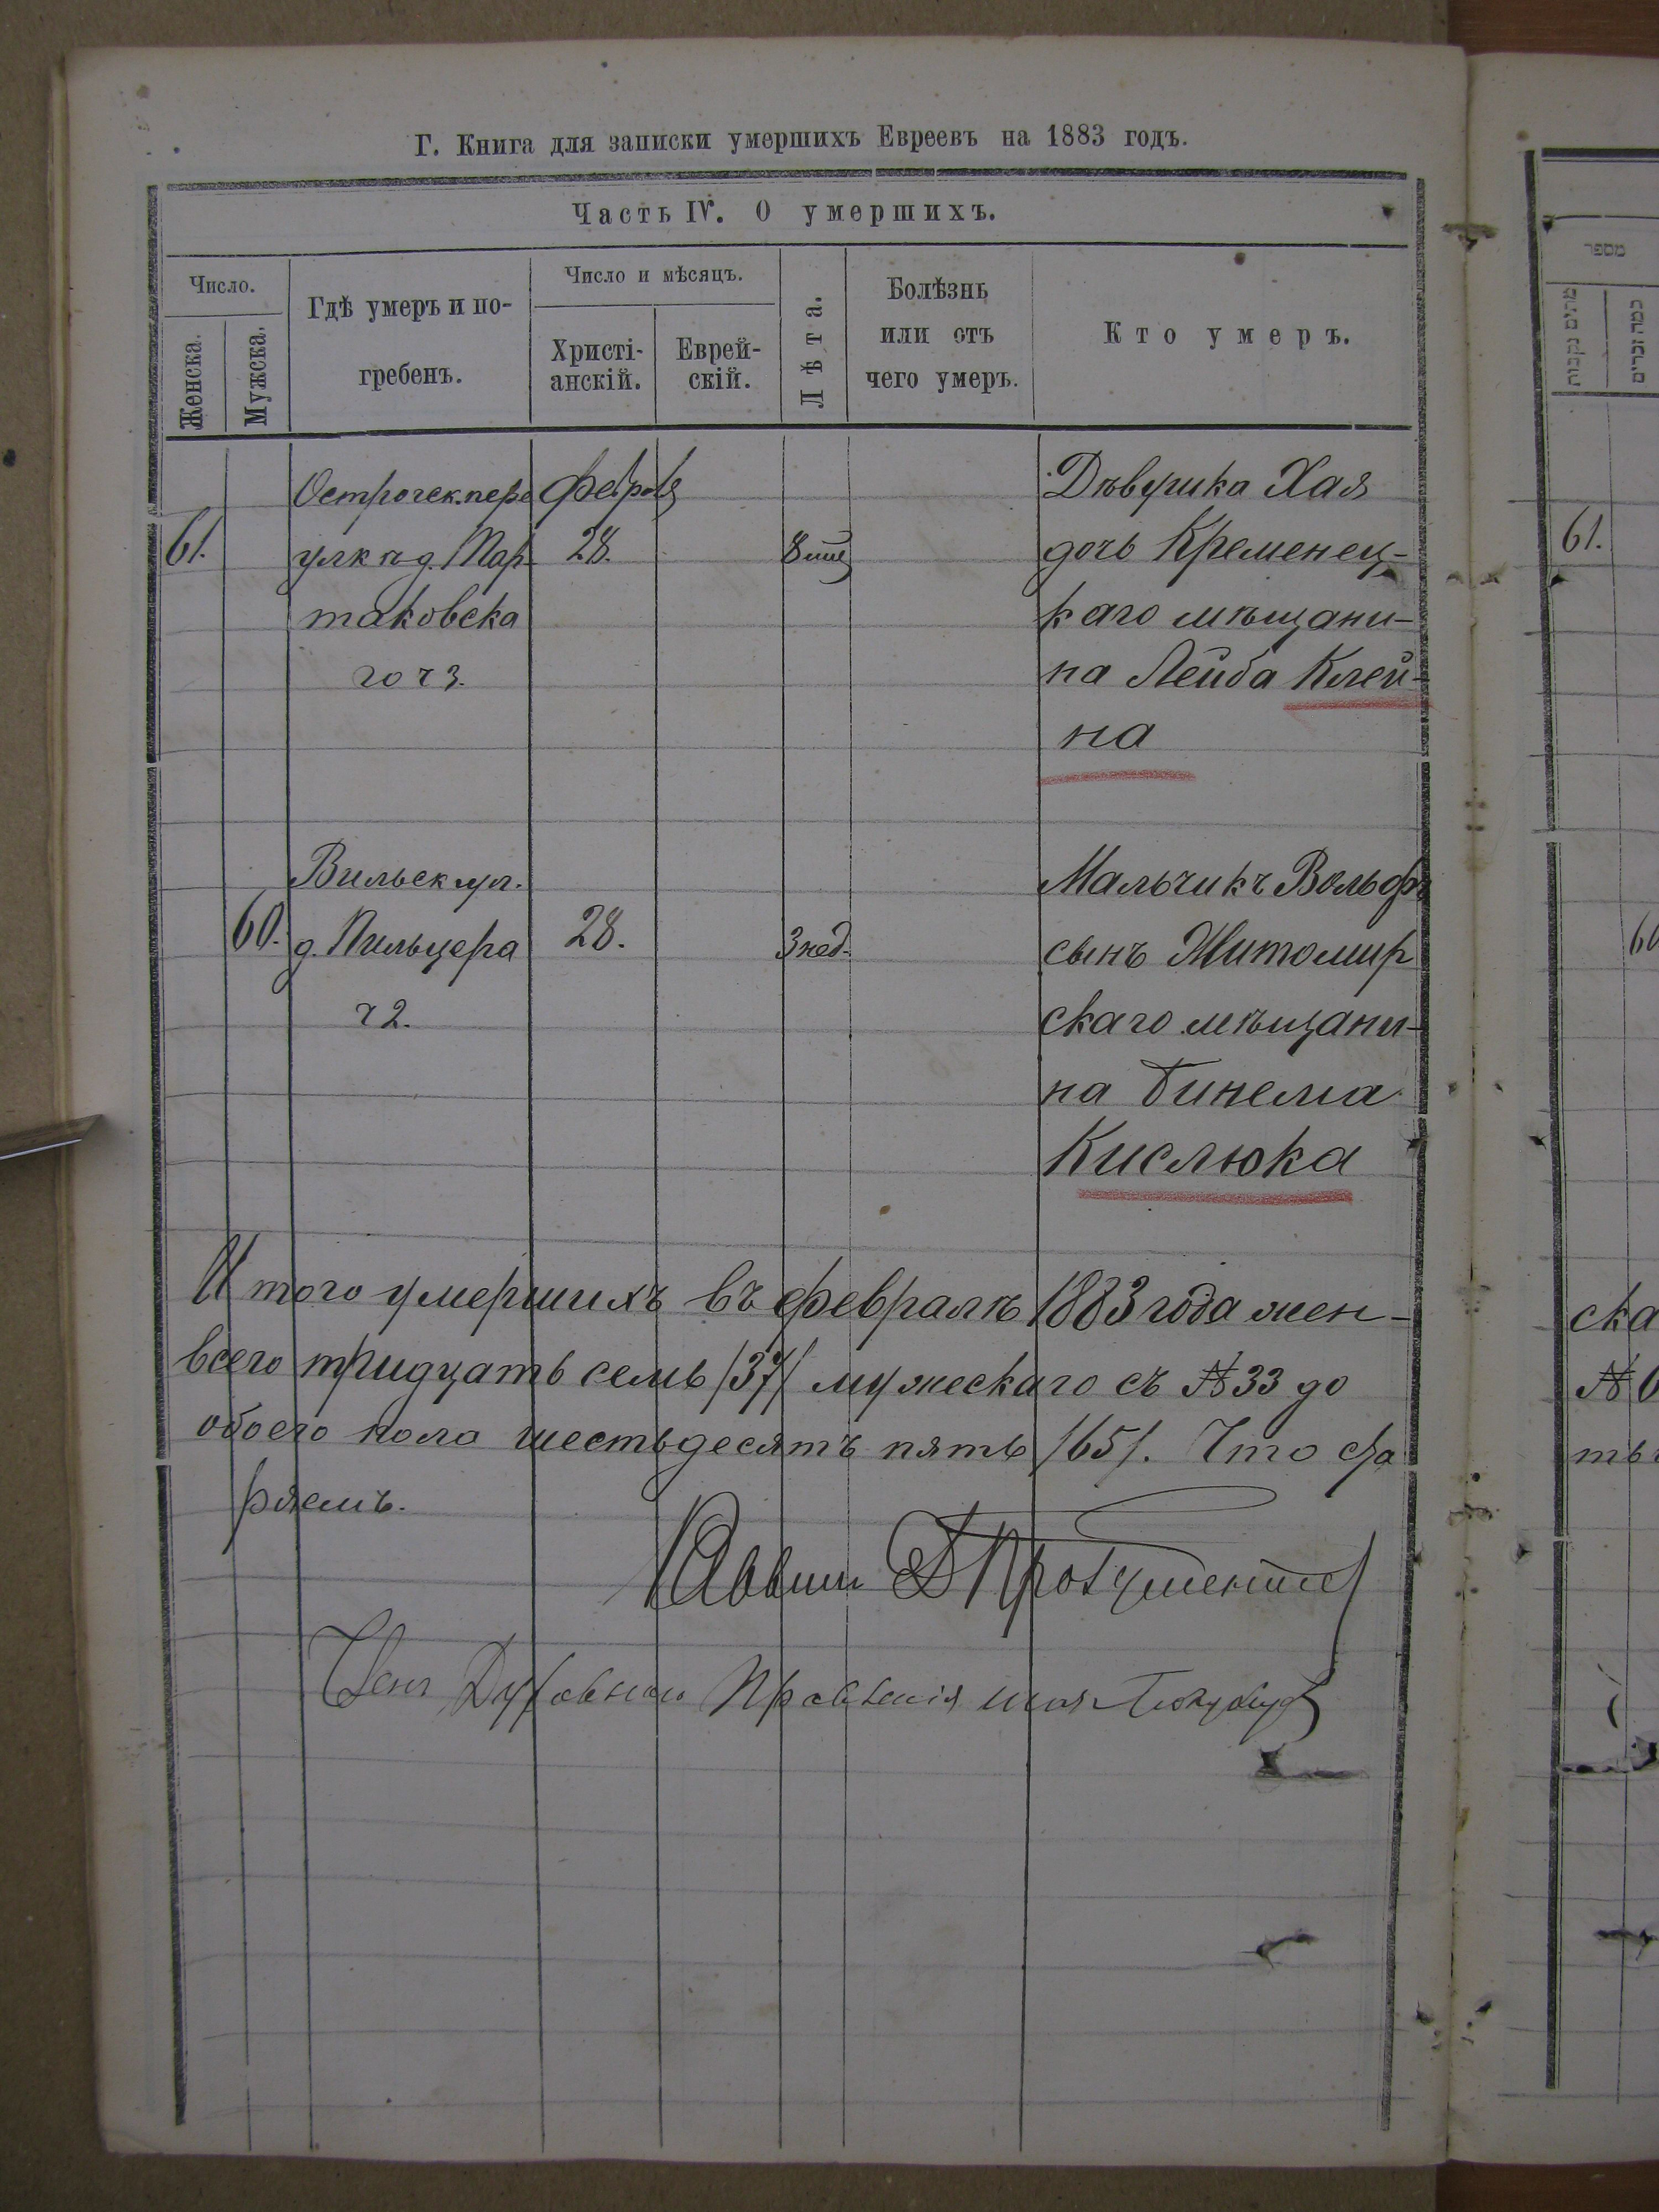 Г. Книга для записки умершихъ Евреевъ на 1883 годъ.
Часть IV. О умершихъ.
Число.
Женска.
Мужска.
Гдѣ умеръ и по-
гребенъ.
Число и мѣсяцъ.
Христі-
анскій.
Еврей-
скій.
Лѣта.
Болѣзнь
или отъ
чего умеръ.
Кто умеръ.
Острогск. пере
улкѣ д. Пар-
таковска
го ч 3.
61.
28.
Дѣвушка Хая
дочь Кременец-
каго мѣщани-
на Лейба Клей-
на
Вильск ул.
60. д. Пильцера
ч 2.
28.
3 нед.
Мальчикъ Вольфъ
сынъ Житомир
скаго мѣщани-
на Бинема
Кислюка
Итого умершихъ въ февралѣ 1883 года жен-
всего тридцать семь /37/ мужескаго съ № 33 до
обоего пола шестьдесятъ пять /65/. Что
ряемъ.
Раввинъ
Членъ Духовнаго Правленія
מספר
מתים נקבות
כמה זכרים
61.
60
ска
№
ть